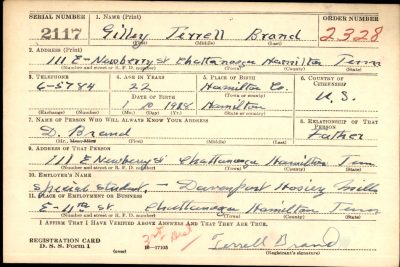 SERIAL NUMBER 1. NAME (Print) ORDER NUMBER
2117 Gilley Terrell Brand 2328
(First) (Middle) (Last)
2. ADDRESS (Print)
111 E Newberry St Chattanooga Hamilton Tenn
(Number and street or R. F. D. number) (Town) (County) (State)
3. TELEPHONE 4. AGE IN YEARS 5. PLACE OF BIRTH 6. COUNTRY OF CITIZENSHIP
6-5784 22 Hamilton Co.
DATE OF BIRTH (Town or county)
1 10 Hamilton U. S.
(Exchange) (Number) (Mo.) (Day) (Yr.) (State or country)
7. NAME OF PERSON WHO WILL ALWAYS KNOW YOUR ADDRESS 8. RELATIONSHIP OF THAT PERSON
D. Brand Father
(First) (Middle) (Last)
9. ADDRESS OF THAT PERSON
111 E Newberry St Chattanooga Hamilton Tenn
(Number and street or R. F. D. number) (Town) (County) (State)
10. EMPLOYER'S NAME
Special Student, — Davenport Hosiery Mills
11. PLACE OF EMPLOYMENT OR BUSINESS
E- 11th St Chattanooga Hamilton Tenn
(Number and street or R. F. D. number) (Town) (County) (State)
I AFFIRM THAT I HAVE VERIFIED ABOVE ANSWERS AND THAT THEY ARE TRUE.
REGISTRATION CARD
D. S. S. Form 1 16—17105 Terrell Brand
(Registrant's signature)